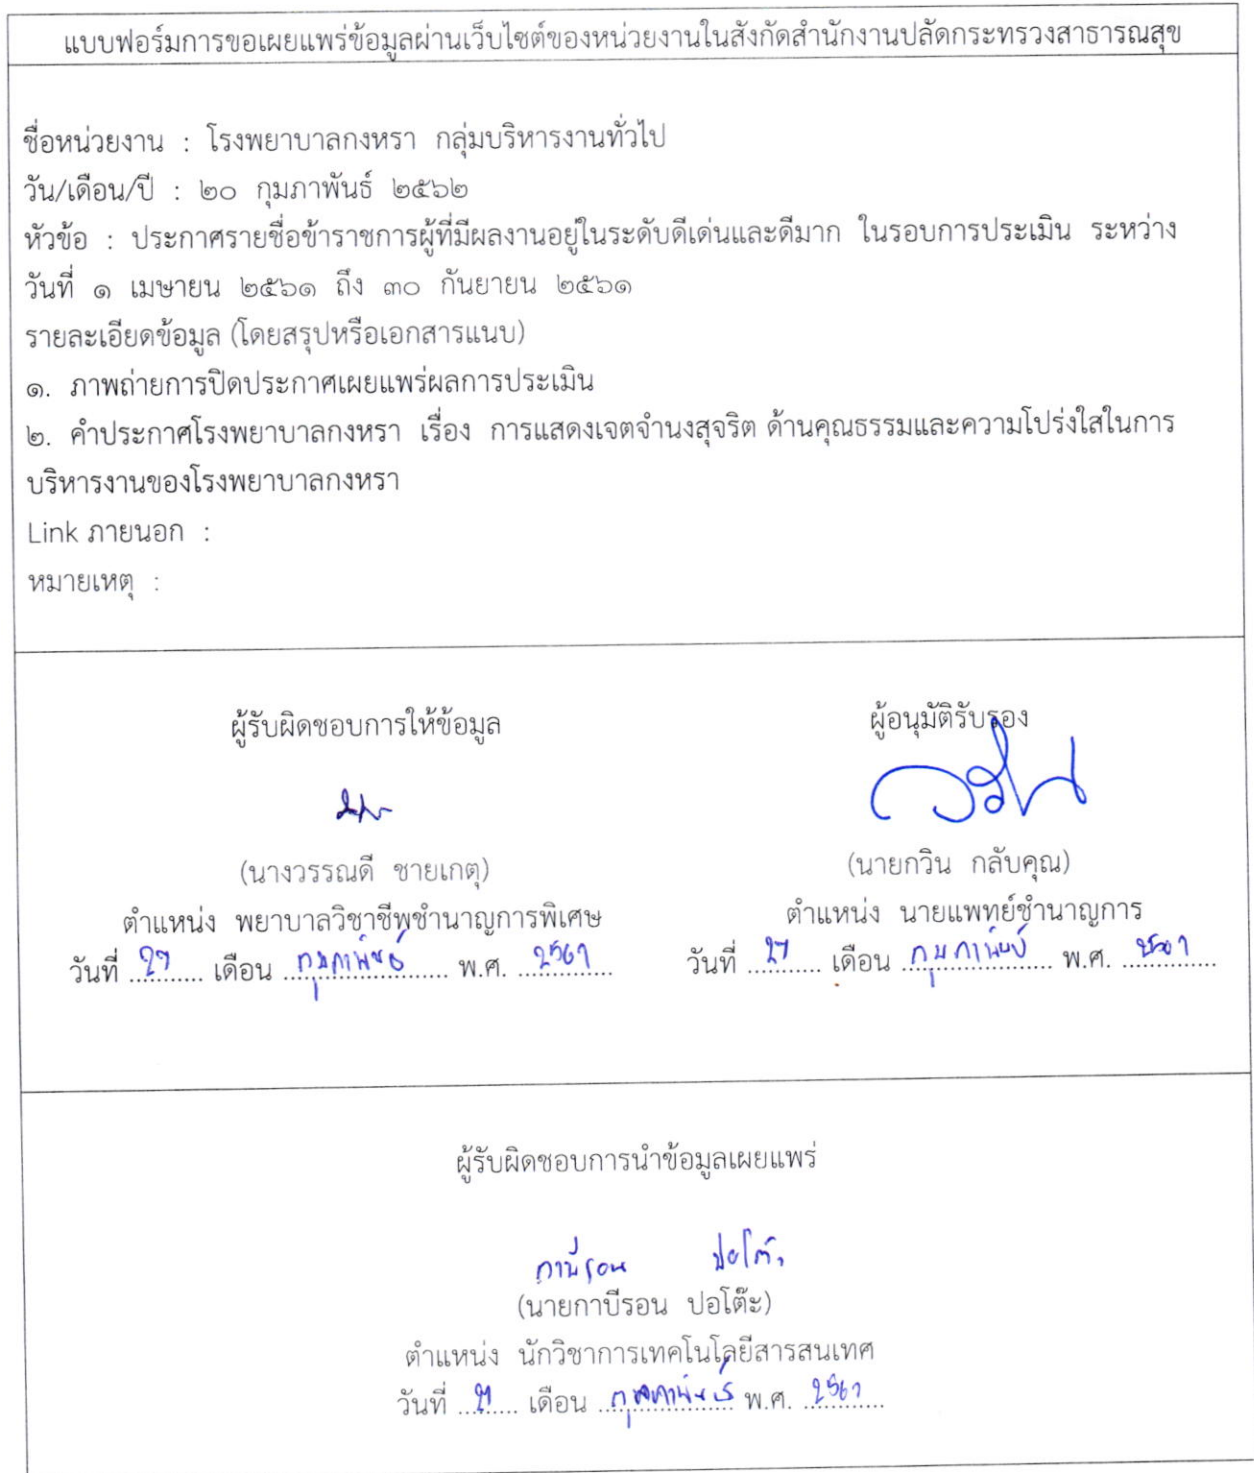 แบบฟอร์มการขอเผยแพร่ข้อมูลผ่านเว็บไซต์ของหน่วยงานในสังกัดสำนักงานปลัดกระทรวงสาธารณสุข
ชื่อหน่วยงาน : โรงพยาบาลกงหรา กลุ่มบริหารงานทั่วไป
วัน/เดือน/ปี : ๒๐ กุมภาพันธ์ ๒๕๖๒
หัวข้อ : ประกาศรายชื่อข้าราชการผู้ที่มีผลงานอยู่ในระดับดีเด่นและดีมาก ในรอบการประเมิน ระหว่าง
วันที่ ๑ เมษายน ๒๕๖๑ ถึง ๓๐ กันยายน ๒๕๖๑
รายละเอียดข้อมูล (โดยสรุปหรือเอกสารแนบ)
๑. ภาพถ่ายการปิดประกาศเผยแพร่ผลการประเมิน
๒. คำประกาศโรงพยาบาลกงหรา เรื่อง การแสดงเจตจำนงสุจริต ด้านคุณธรรมและความโปร่งใสในการ
บริหารงานของโรงพยาบาลกงหรา
Link ภายนอก :
หมายเหตุ :
ผู้รับผิดชอบการให้ข้อมูล ผู้อนุมัติรับรอง
(นางวรรณดี ชายเกตุ) (นายกวิน กลับคุณ)
ตำแหน่ง พยาบาลวิชาชีพชำนาญการพิเศษ ตำแหน่ง นายแพทย์ชำนาญการ
วันที่ เดือน กุมภาพันธ์ พ.ศ. วันที่ เดือน กุมภาพันธ์ พ.ศ.
ผู้รับผิดชอบการนำข้อมูลเผยแพร่
กาบีรอน ปอโต๊ะ
(นายกาบีรอน ปอโต๊ะ)
ตำแหน่ง นักวิชาการเทคโนโลยีสารสนเทศ
วันที่ เดือน กุมภาพันธ์ พ.ศ.